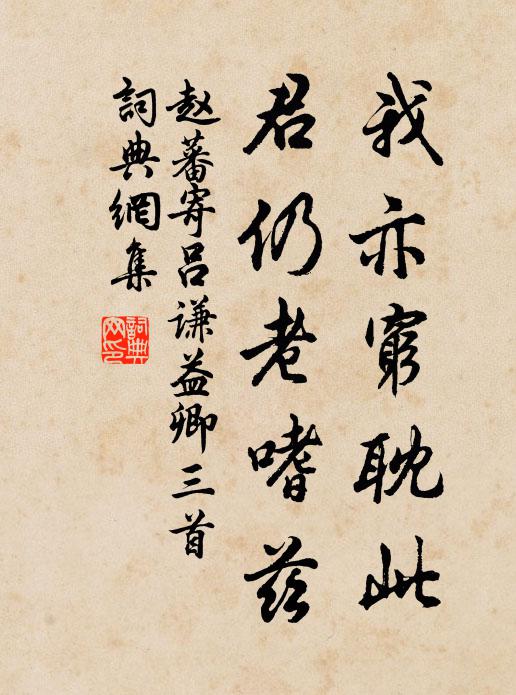 我亦窮耽此
君仍老嗜茲
赵蕃寄呂谦益卿三首
詞典網集
詞典網印